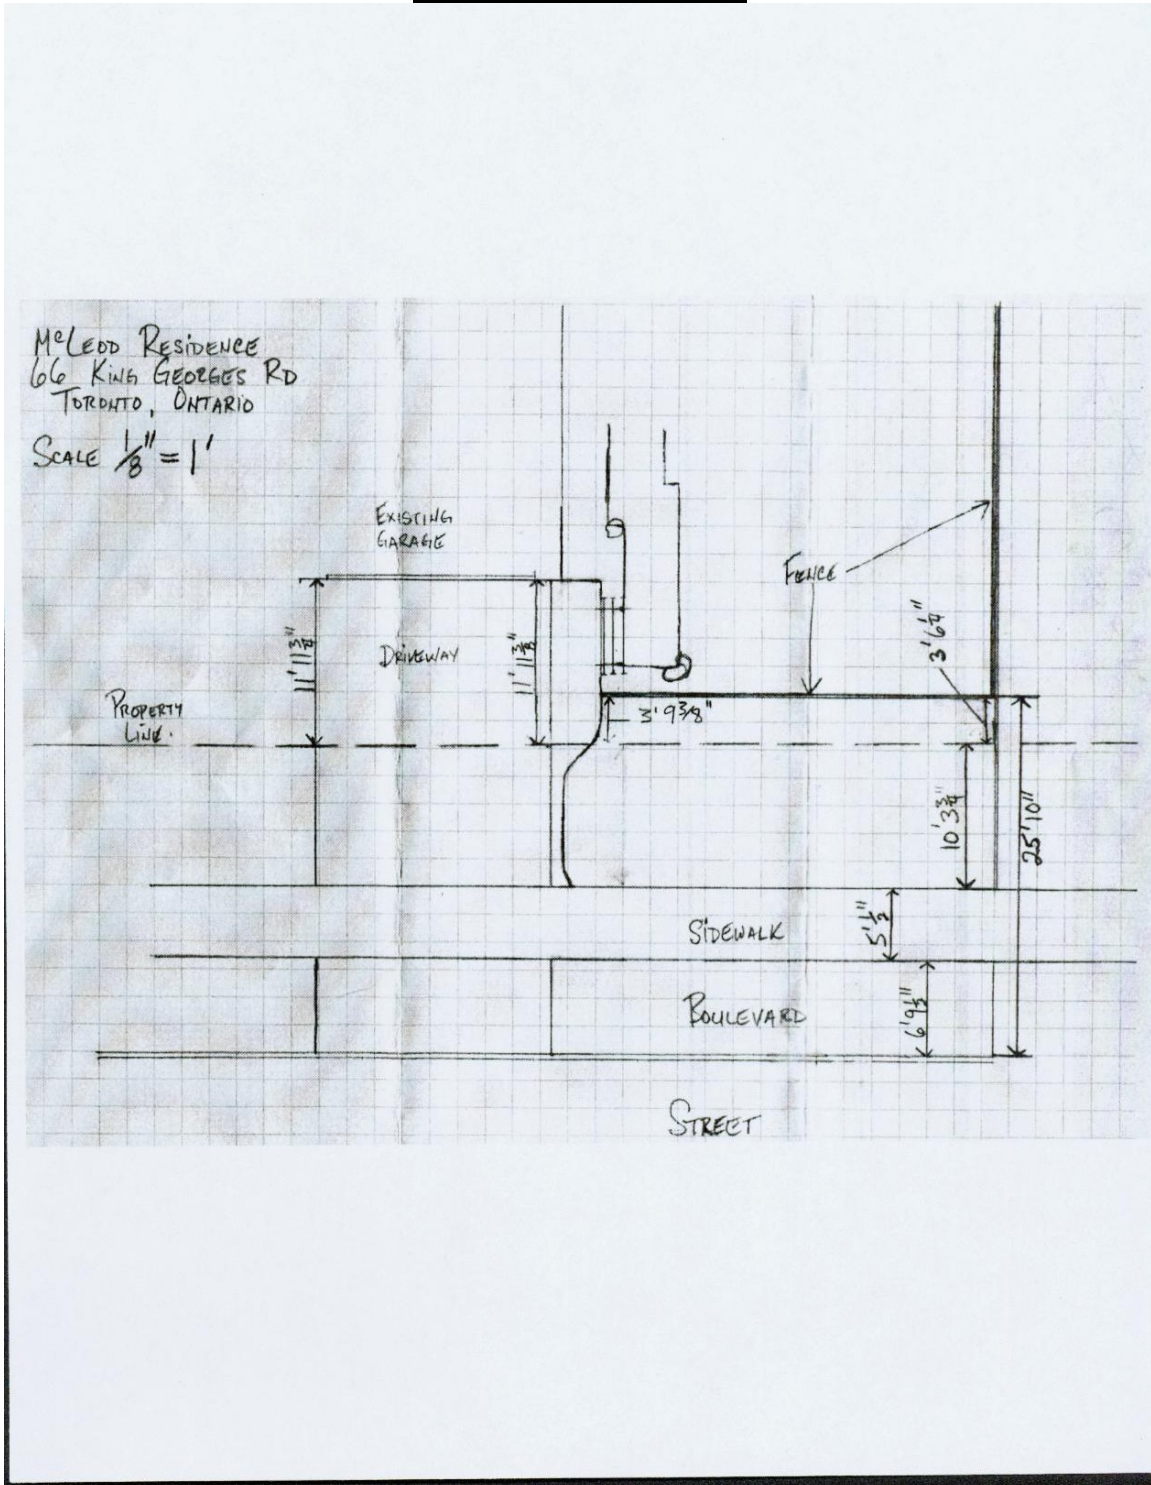 McLEOD RESIDENCE
66 KING GEORGES RD
TORONTO, ONTARIO
SCALE 1/8" = 1'
EXISTING
GARAGE
FENCE
11' 11 3/4"
DRIVEWAY
11' 11 3/8"
3' 6 1/4"
PROPERTY
LINE.
3' 9 3/8"
10' 3 3/4"
25' 10"
SIDEWALK
5' 1/2"
BOULEVARD
6' 9 1/2"
STREET